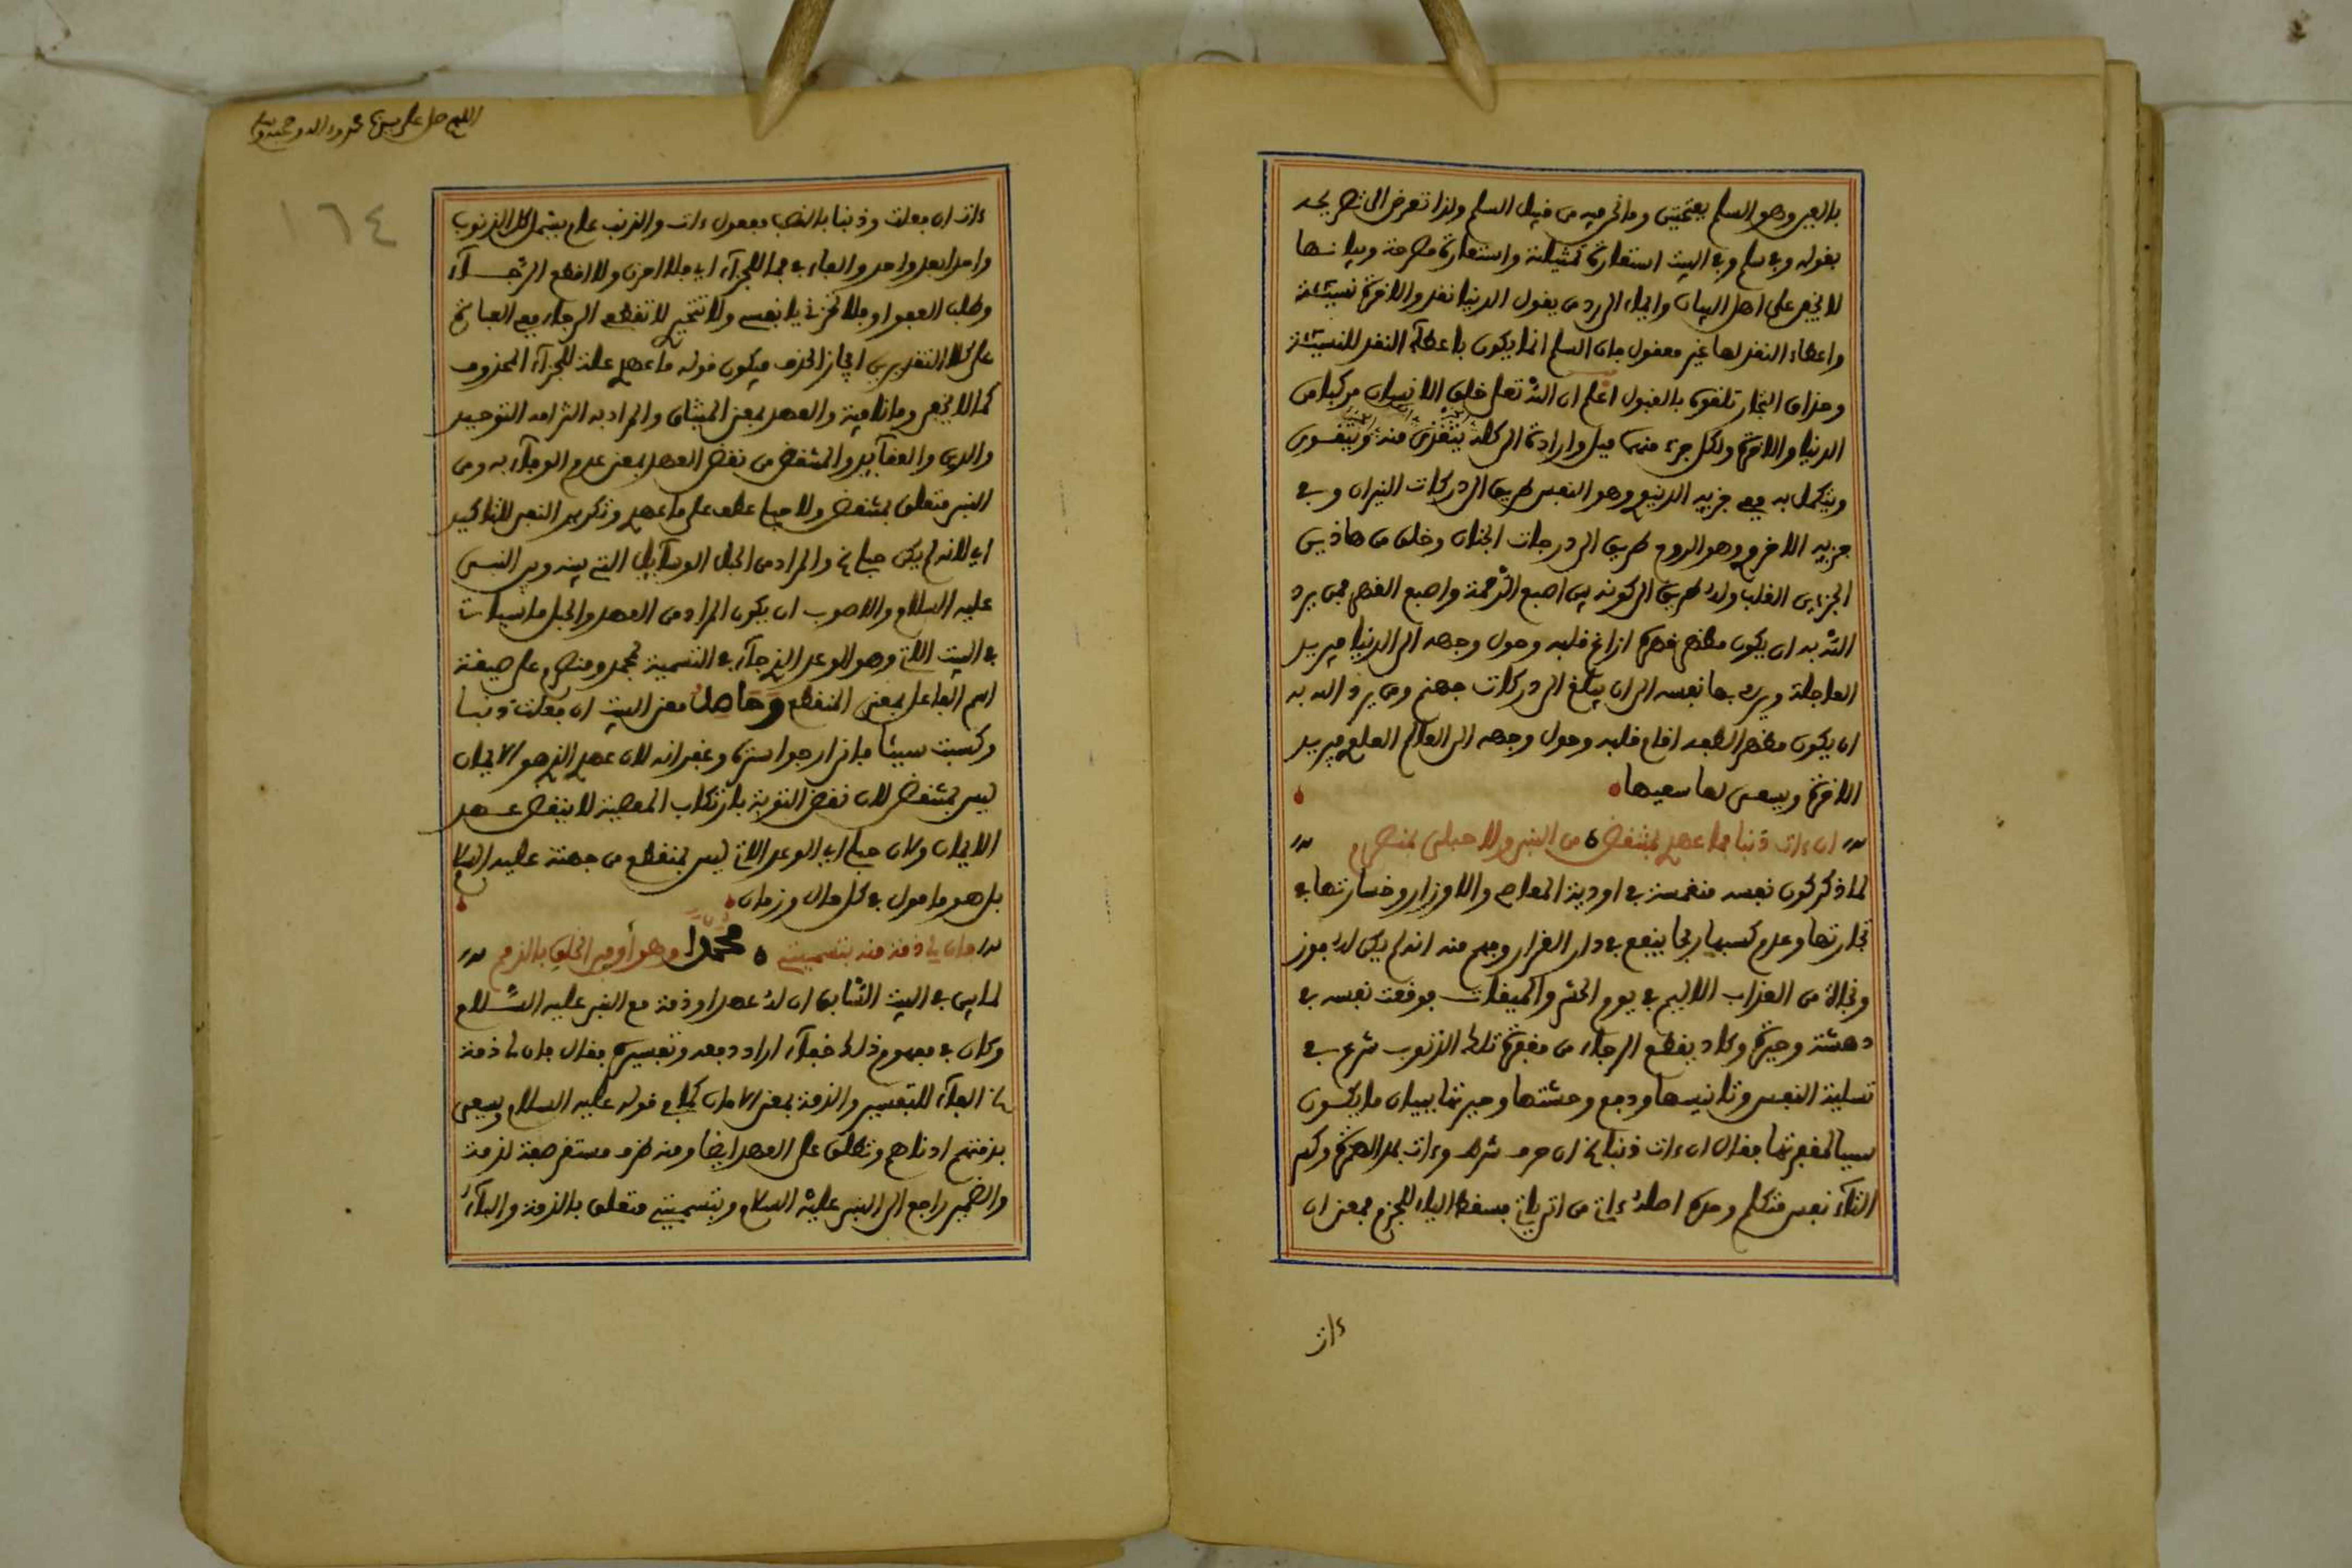 بالعين وهو السلم بفتحتين وما نحن فيه من قبيل السلم ولذا تعرض الى تصريحه
بقوله وفي سلم وفي البيت استعارة تمثيلية واستعارة مصرحة وبيانها
لا يخفى على اهل البيان وايماء الى رد من يقول الدنيا نقد والاخرة نسيئة
واعطاء النقد لها غير معقول فان السلم انما يكون باعطاء النقد للنسيئة
وحذاق التجار تلقوه بالقبول اعلم ان الله تعلى خلق الانسان مركبا من
الدنيا والاخرة ولكل جزء منهما ميل وارادة الى كله يتغذى منه ويتقوى
ويتكمل به ففي جزيه الدنيوي وهو النفس طريق الى دركات النيران وفي
جزيه الاخروي وهو الروح طريق الى درجات الجنان وخلق من هاذين
الجزءين القلب وله طريق الى كونه بين اصبع الرحمة واصبع القهر فمن يرد
الله به ان يكون مظهر قهره ازاغ قلبه وحول وجهه الى الدنيا فيريد
العاجلة ويربي بها نفسه الى ان يبلغ الى دركات جهنم ومن يرد الله به
ان يكون مظهر الطفه اقام قلبه وحول وجهه الى العالم العلوي فيريد
الاخرة ويسعى لها سعيها
ان ءات ذنبا فما عهدي بمنتقض ه من النبي ولا حبلى بمنصرم
لما ذكر كون نفسه منغمسة في اودية المعاصي والاوزار وخسارتها في
تجارتها وعدم كسبها ربحا ينفع في دار القرار وفهم منه انه لم يكن له فوز
ونجاة من العذاب الاليم في يوم الحشر والميقات فوقعت نفسه في
دهشة وحيرة وكاد يقطع الرجاء من مغفرة تلك الذنوب شرع في
تسلية النفس وتانيسها ودفع وحشتها وحيرتها ببيان ما يكون
سببا لمغفرتها فقال ان ءات ذنبا الخ ان حرف شرط وءات بمد الهمزة وكسر
التاء نفس متكلم وحده اصله ءاتي من اتى ياتي فسقط الياء للجزم فمعنى ان
ءات
اللهم صل على سيدنا محمد وءاله وصحبه وسلم
١٦٤
ءات ان فعلت وذنبا بالنصب مفعول ءات والذنب عام يشمل كل الذنوب
واحدا بعد واحد والفاء في فما للجزاء اي فلا احزن ولا اقطع الرجاء
وطلب العفو او فلا تحزني يا نفسي ولا تتحيري لا تقطعي الرجاء ففي العبارة
على كلا التقديرين ايجاز الحذف فيكون قوله ما عهدي علة للجزاء المحذوف
كما لا يخفى وما نافية والعهد بمعنى الميثاق والمراد به التزامه التوحيد
والدين والعقائد والمنتقض من نقض العهد بمعنى عدم الوفاء به ومن
النبي متعلق بمنتقض ولا حبلي عطف على ما عهدي وتكرير النفي للتاكيد
اي لانه لم يكن حبلي الخ والمراد من الحبل الوسائل التي بينه وبين النبي
عليه السلام والاصوب ان يكون المراد من العهد والحبل ما سيات
في البيت الاتي وهو الوعد الذي جاء في التسمية بمحمد ومنصرم على صيغة
اسم الفاعل بمعنى المنقطع وحاصل معنى البيت ان فعلت ذنبا
وكسبت سيئا فاني ارجو استره وغفرانه لان عهدي الذي هو الايمان
ليس بمنتقض لان نقض التوبة بارتكاب المعصية لا ينقض عهد
الايمان وكان حبلي اي الوعد الاتي ليس بمنقطع من جهته عليه السلام
بل هو مامول في كل حال وزمان
فان لي ذمة منه بتسميتي ه محمدا وهو أوفى الخلق بالذمم
لما بين في البيت السابق ان له عهدا وذمة مع النبي عليه السلام
وكان في مفهوم ذلك خفاء اراد دفعه وتفسيره فقال فان لي ذمة
الخ الفاء للتفسير والذمة بمعنى الامان كما في قوله عليه السلام ويسعى
بذمتهم ادناهم وتطلق على العهد ايضا ومنه ظرف مستقر صفة لذمة
والضمير راجع الى النبي عليه السلام وبتسميتي متعلق بالذمة والباء